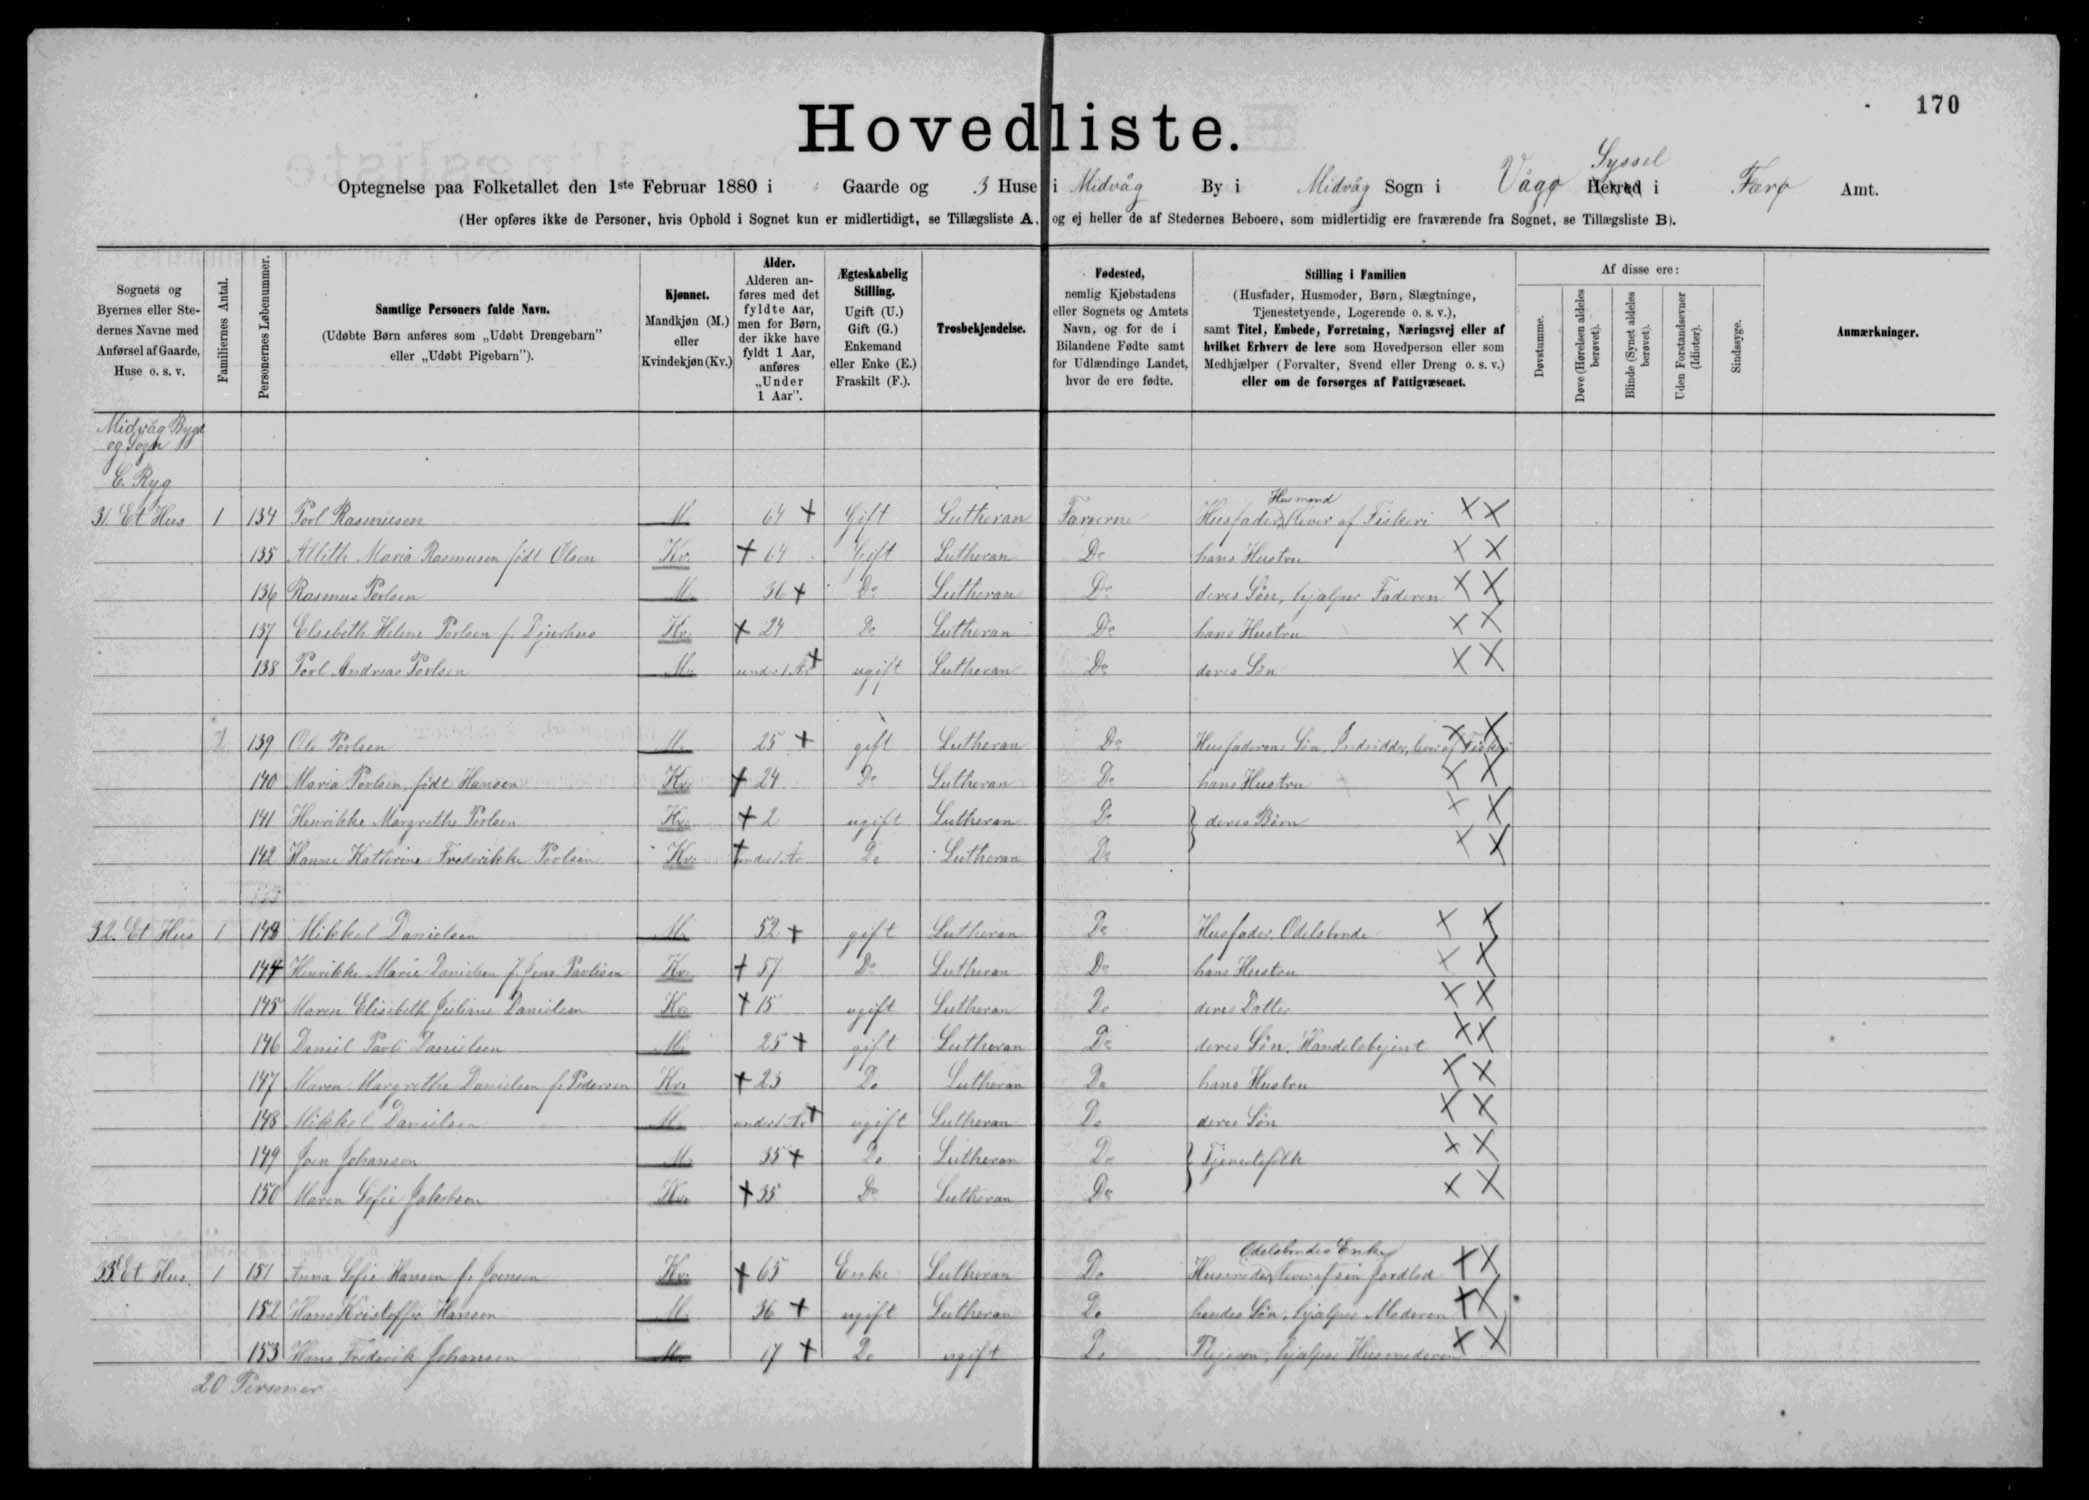 170
Hovedliste.
Optegnelse paa Folketallet den 1ste Februar 1880 i Gaarde og 3 Huse i Midvåg By i Midvåg Sogn i Vågø Syssel Herred i Færø Amt.
(Her opføres ikke de Personer, hvis Ophold i Sognet kun er midlertidigt, se Tillægsliste A, og ej heller de af Stedernes Beboere, som midlertidig ere fraværende fra Sognet, se Tillægsliste B).
Sognets og Byernes eller Stedernes Navne med Anførsel af Gaarde, Huse o. s. v.
Familiernes Antal.
Personernes Løbenummer.
Samtlige Personers fulde Navn.
(Udøbte Børn anføres som „Udøbt Drengebarn" eller „Udøbt Pigebarn").
Kjønnet.
Mandkjøn (M.) eller Kvindekjøn (Kv.)
Alder.
Alderen anføres med det fyldte Aar, men for Børn, der ikke have fyldt 1 Aar, anføres „Under 1 Aar".
Ægteskabelig Stilling.
Ugift (U.) Gift (G.) Enkemand eller Enke (E.) Fraskilt (F.).
Trosbekjendelse.
Fødested,
nemlig Kjøbstadens eller Sognets og Amtets Navn, og for de i Bilandene Fødte samt for Udlændinge Landet, hvor de ere fødte.
Stilling i Familien
(Husfader, Husmoder, Børn, Slægtninge, Tjenestetyende, Logerende o. s. v.), samt Titel, Embede, Forretning, Næringsvej eller af hvilket Erhverv de leve som Hovedperson eller som Medhjælper (Forvalter, Svend eller Dreng o. s. v.) eller om de forsørges af Fattigvæsenet.
Af disse ere:
Døvstumme.
Døve (Hørelsen aldeles berøvet).
Blinde (Synet aldeles berøvet).
Uden Forstandsevner (Idioter).
Sindssyge.
Anmærkninger.
Midvåg Bygd
og Sogn
E. Ryg
31. Et Hus 1 134 Poul Rasmusen M 64 + Gift Lutheran Færøerne Husfader, Husmand lever af Fiskeri X X
135 Maria Rasmusen født Olsen Kv. + 64 Gift Lutheran Do hans Hustru X X
136 Rasmus Poulsen M. 36 + Do Lutheran Do deres Søn, hjælper Faderen X X
137 Elsebeth Helene Poulsen f. Djurhus Kv. + 24 Do Lutheran Do hans Hustru X X
138 Poul Andreas Poulsen M. under 1 Ar + ugift Lutheran Do deres Søn X X
139 Ole Poulsen M. 25 + gift Lutheran Do Husfaderens Søn, Indsidder, lever af Fiskeri X X
140 Maria Poulsen, født Hansen Kv. + 24 Do Lutheran Do hans Hustru X X
141 Henrikke Margrethe Poulsen Kv. + 2 ugift Lutheran Do } deres Børn X X
142 Hanne Katterine Frederikke Poulsen Kv. + under 1 Ar Do Lutheran Do X X
32. Et Hus 1 143 Mikkel Danielsen M. 52 + gift Lutheran Do Husfader. Odelsbonde X X
144 Henrikke Marie Danielsen f. Kv. + 57 Do Lutheran Do hans Hustru X X
145 Maren Elisebeth Juliene Danielsen Kv. + 15 ugift Lutheran Do deres Datter X X
146 Daniel Pauli Danielsen M. 25 + gift Lutheran Do deres Søn. Handelsbetjent X X
147 Maren Margrethe Danielsen f. Pedersen Kv. + 23 Do Lutheran Do hans Hustru X X
148 Mikkel Danielsen M. under 1 Ar + ugift Lutheran Do deres Søn X X
149 Joen Johansen M. 35 + Do Lutheran Do } Tjenestefolk X X
150 Maren Sofie Jakobsen Kv. + 35 Do Lutheran Do X X
33. Et Hus. 1 151 Anna Sofie Hansen f. Joensen Kv. + 65 Enke Lutheran Do Husmoder, Odelsbondes Enke lever af sin Jordlod X X
152 Hans Kristoffer Hansen M. 36 + ugift Lutheran Do hendes Søn, hjælper Moderen X X
153 Hans Frederik Johansen M. 17 + Do ugift Do Plejesøn, hjælper Husmoderen X X
20 Personer